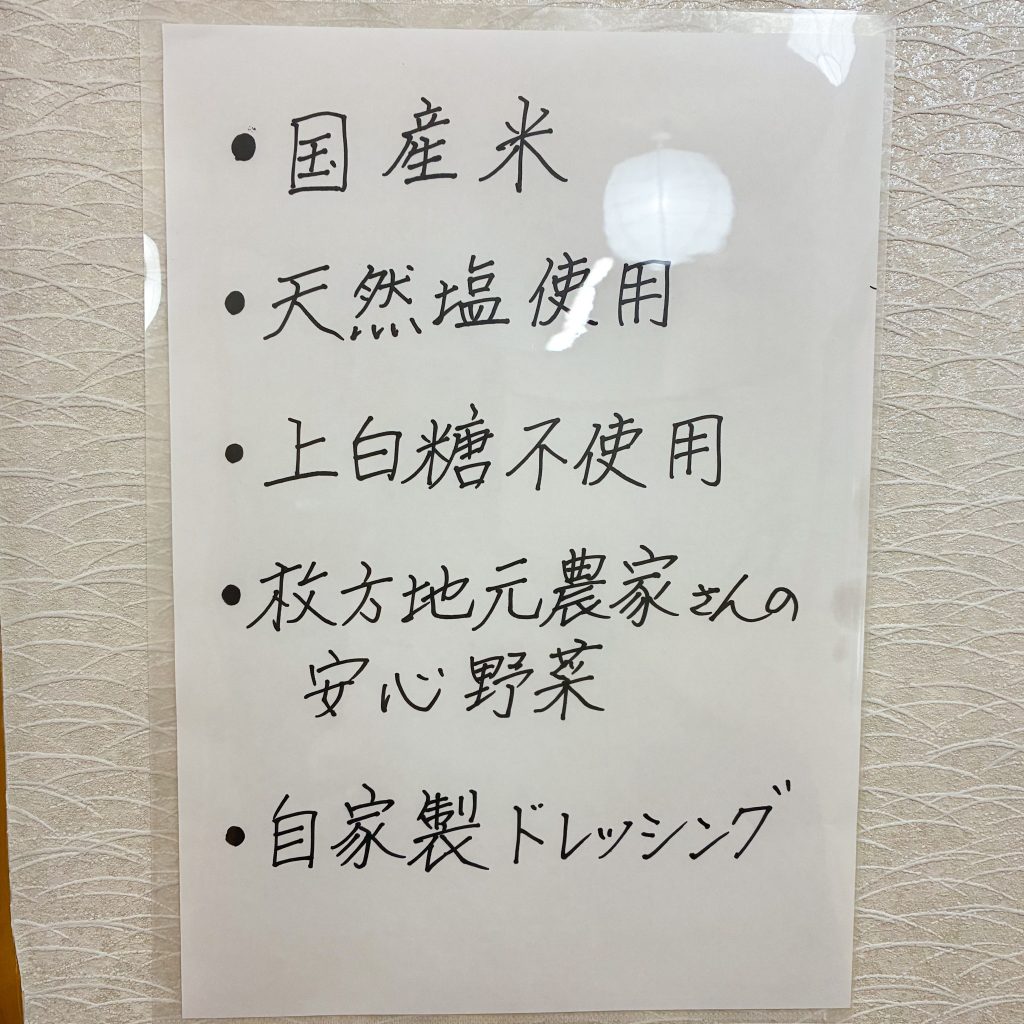 ・国産米
・天然塩使用
・上白糖不使用
・枚方地元農家さんの
安心野菜
・自家製ドレッシング